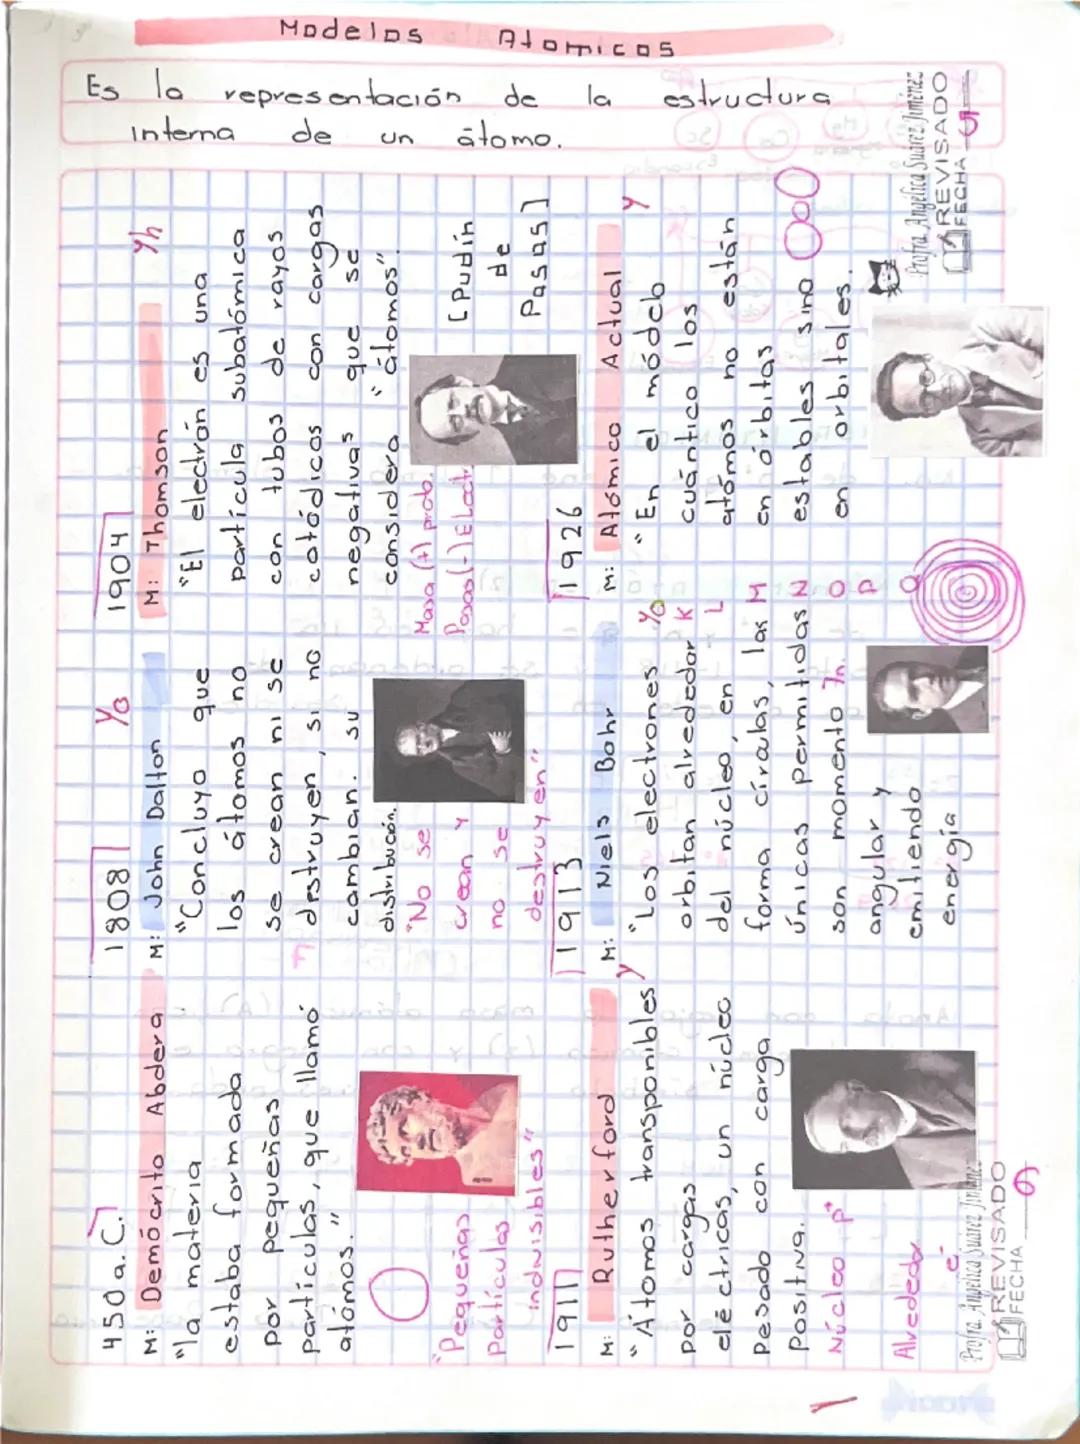 Modelos Atomicos
Es la representación de la estructura
interna de un átomo.
450 a.C.
M: Demócrito Abdera
"la materia
estaba formada
por pequeñas
partículas, que llamó
atómos."
"Pequeñas
partículas
indivisibles"
1808
M: John Dalton
"Concluyo que
los átomos no
se crean ni se
destruyen, si no
cambian. su
distribucón.
"No se
crean y
no se
destruyen"
1904
M: Thomson
"El electrón es una
partícula subatómica
con tubos de rayos
catódicos con cargas
negativas que se
considera "átomos".
Masa (+) prob.
Pasas (-) Elect.
[Pudín
de
Pasas]
1911
M: Rutherford
"Átomos transponibles
por cargas
eléctricas, un núcleo
Pesado con carga
Positiva.
Núcleo p+
Alrededor
e-
1913
M: Niels Bohr
"Los electrones
orbitan alrededor
del núcleo, en
forma círculas, las
únicas permitidas
son momento
angular y
emitiendo
energía
K
L
M
N
O
P
Q
7n.
1926
M: Atómico Actual
"En el módelo
cuántico los
atómos no están
en órbitas
estables sino
en orbitales.
Profra. Angélica Suárez Jiménez
REVISADO
FECHA
Profra. Angélica Suárez Jiménez
REVISADO
FECHA